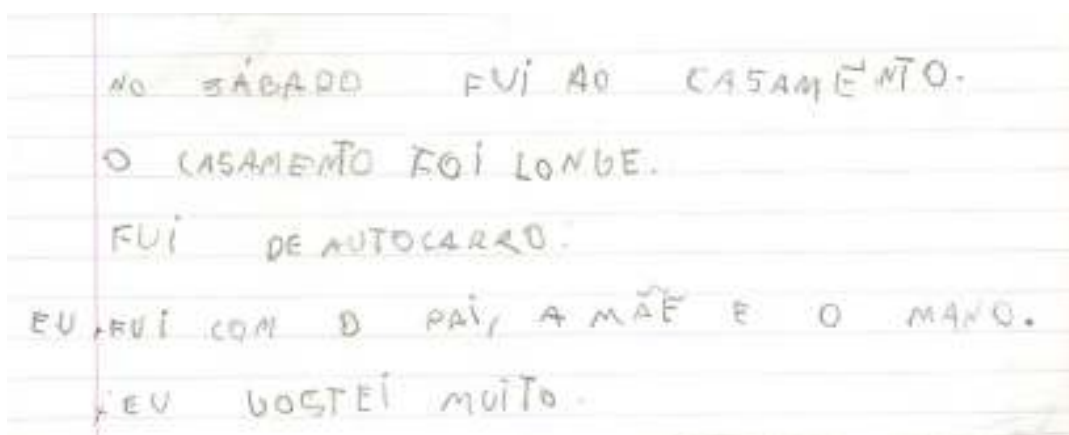 NO SÁBADO FUI AO CASAMENTO.
O CASAMENTO FOI LONGE.
FUI DE AUTOCARRO.
EU FUI COM O PAI, A MÃE E O MANO.
EU GOSTEI MUITO.